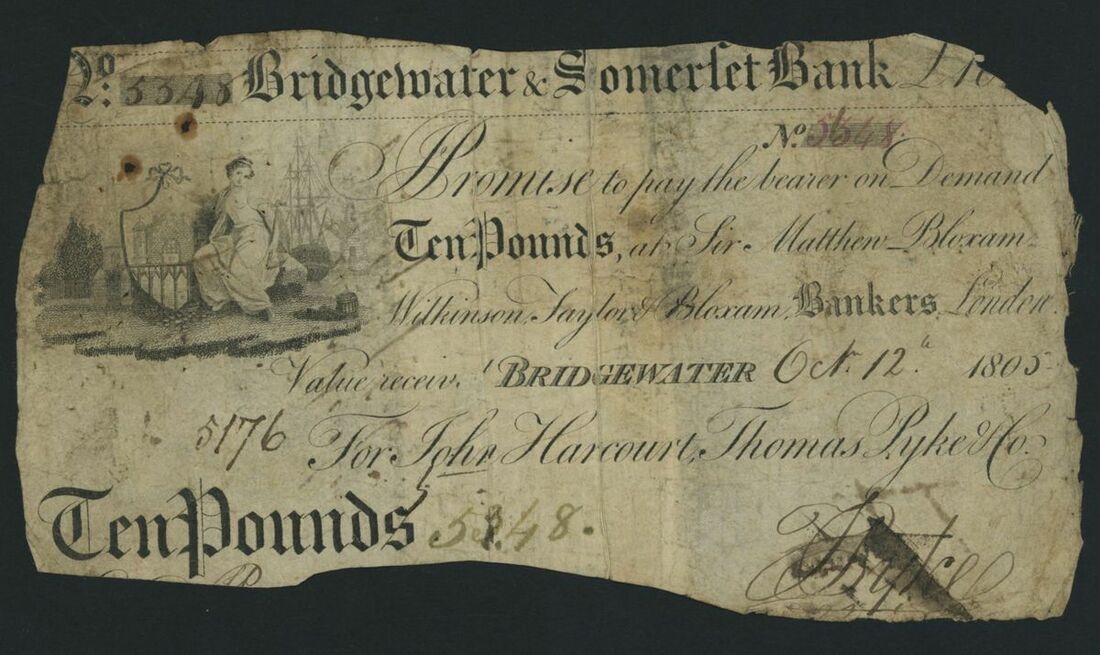 No. 5348 Bridgewater & Somerſet Bank £10
No. 5348
I Promise to pay the bearer on Demand
Ten Pounds, at Sir Matthew Bloxam
Wilkinson, Taylor & Bloxam, Bankers, London.
Value receiv.d BRIDGEWATER Oct. 12th 1805
5176 For John Harcourt, Thomas Pyke & Co.
Ten Pounds 5348.